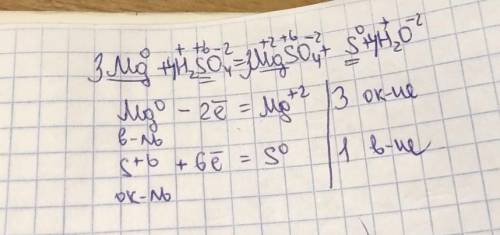 3Mg⁰ + 4H₂⁺S⁺⁶O₄⁻² = 3Mg⁺²S⁺⁶O₄⁻² + S⁰ + 4H₂⁺O⁻²
Mg⁰ − 2ē = Mg⁺² | 3 ок-ие
в-ль
S⁺⁶ + 6ē = S⁰ | 1 в-ие
ок-ль